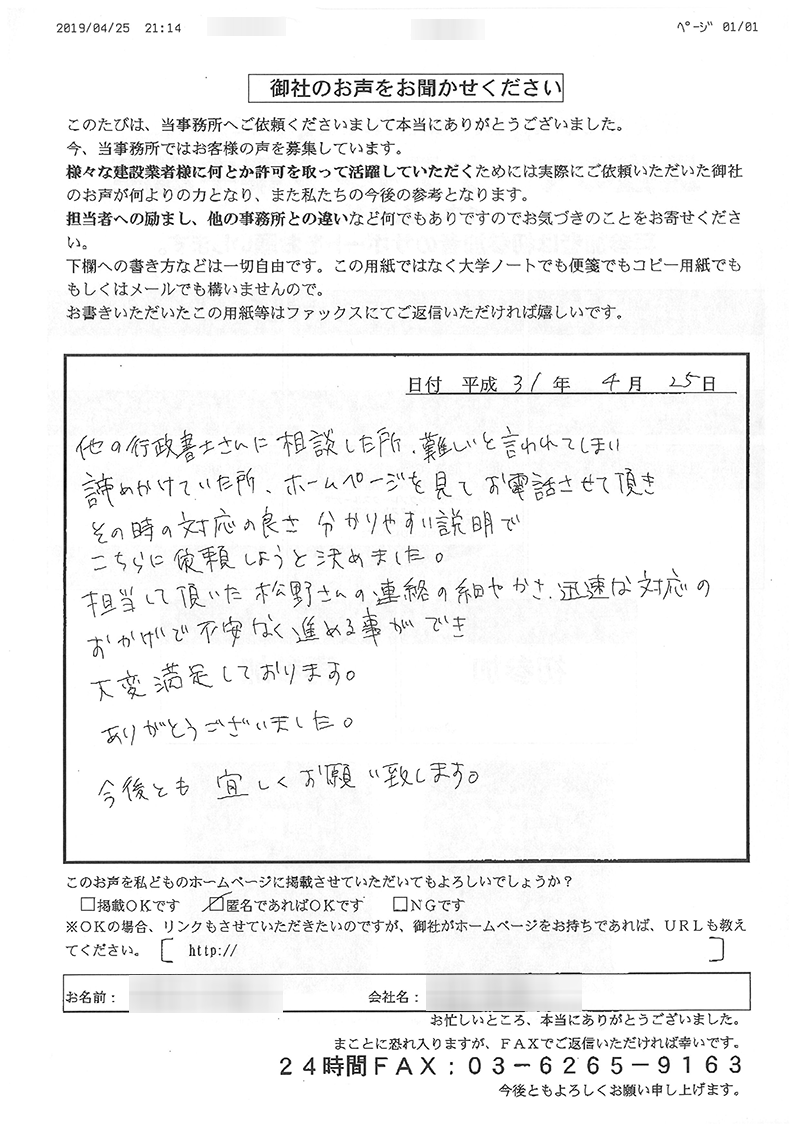 2019/04/25 21:14 ﾍﾟｰｼﾞ 01/01
御社のお声をお聞かせください
このたびは、当事務所へご依頼くださいまして本当にありがとうございました。
今、当事務所ではお客様の声を募集しています。
様々な建設業者様に何とか許可を取って活躍していただくためには実際にご依頼いただいた御社
のお声が何よりの力となり、また私たちの今後の参考となります。
担当者への励まし、他の事務所との違いなど何でもありですのでお気づきのことをお寄せくださ
い。
下欄への書き方などは一切自由です。この用紙ではなく大学ノートでも便箋でもコピー用紙でも
もしくはメールでも構いませんので。
お書きいただいたこの用紙等はファックスにてご返信いただければ嬉しいです。
日付 平成 31 年 4 月 25 日
他の行政書士さんに相談した所、難しいと言われてしまい
諦めかけていた所、ホームページを見てお電話させて頂き
その時の対応の良さ 分かりやすい説明で
こちらに依頼しようと決めました。
担当して頂いた松野さんの連絡の細やかさ、迅速な対応の
おかげで不安なく進める事ができ
大変満足しております。
ありがとうございました。
今後とも宜しくお願い致します。
このお声を私どものホームページに掲載させていただいてもよろしいでしょうか？
□掲載OKです ☑匿名であればOKです □NGです
※OKの場合、リンクもさせていただきたいのですが、御社がホームページをお持ちであれば、URLも教え
てください。〔 http:// 〕
お名前： 会社名：
お忙しいところ、本当にありがとうございました。
まことに恐れ入りますが、FAXでご返信いただければ幸いです。
24時間FAX：03－6265－9163
今後ともよろしくお願い申し上げます。